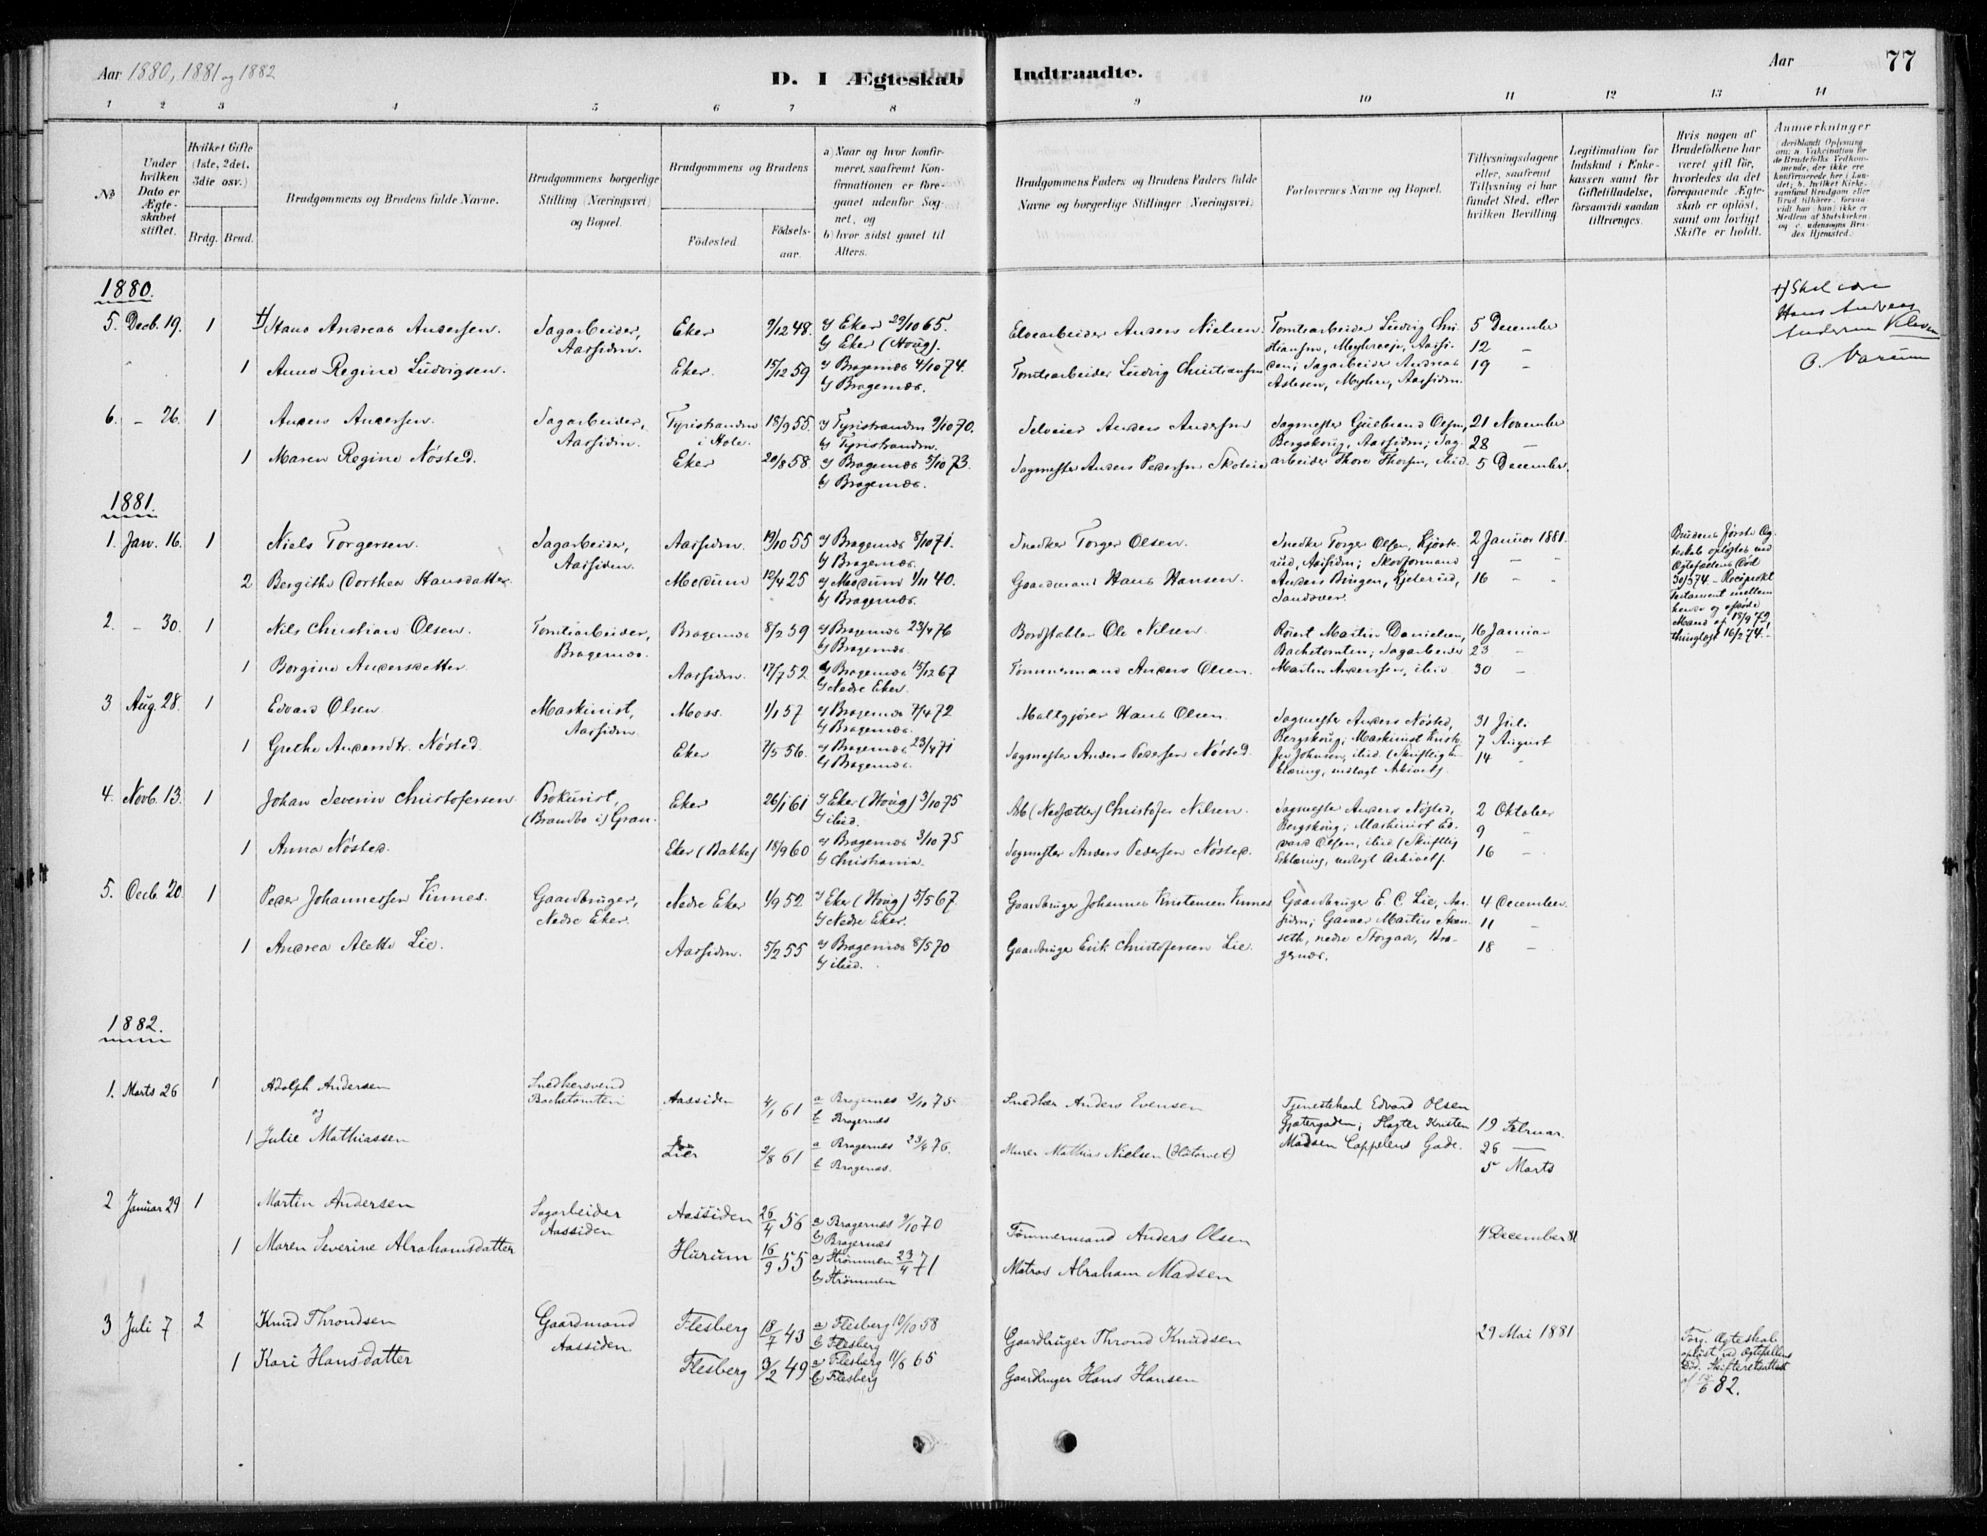 Aar 1880, 1881 og 1882
D. I Ægteskab Indtraadte.
Aar
77
1 2 3 4 5 6 7 8 9 10 11 12 13 14
No
Under hvilken Dato er Ægteskabet stiftet.
Hvilket Gifte (1ste, 2det, 3die osv.)
Brdg. Brud.
Brudgommens og Brudens fulde Navne.
Brudgommens borgerlige Stilling (Næringsvei) og Bopæl.
Brudgommens og Brudens
Fødested.
Fødselsaar.
a) Naar og hvor konfirmeret, saafremt Konfirmationen er foregaaet udenfor Sognet, og
b) hvor sidst gaaet til Alters.
Brudgommens Faders og Brudens Faders fulde Navne og borgerlige Stillinger (Næringsvei)
Forlovernes Navne og Bopæl.
Tillysningsdagene eller, saafremt Tillysning ei har fundet Sted, efter hvilken Bevilling
Legitimation for Indskud i Enkekassen samt for Giftetilladelse, forsaavidt saadan tiltrænges.
Hvis nogen af Brudefolkene har været gift før, hvorledes da det foregaaende Ægteskab er opløst, samt om lovligt Skifte er holdt.
Anmærkninger
(deriblandt Oplysning om: a. Vakcination for de Brudefolks Vedkommende, der ikke ere konfirmerede her i Landet; b. hvilket Kirkesamfund Brudgom eller Brud tilhører, forsaavidt han (hun) ikke er Medlem af Statskirken, og c. udensogns Brudes Hjemsted.)
1880.
5. Decb. 19. 1 +) Hans Andreas Andersen. Sagarbeider, Aassiden. Eker 9/12 48. a) Eker 29/10 65. b) Eker (Houg). Elvearbeider Anders Nielsen. Tomtearbeider Ludvig Christiansen, 5 December 12 –
+) Skal være Hans Andreas Andersen
1 Anne Regine Ludvigsen. Eker. 15/12 59 a) Bragernæs 4/10 74. b) Bragernæs. Tomtearbeider Ludvig Christiansen Sagarbeider Andreas Aslesen, Myhren, Aassiden. 19 –
6. – 26. 1 Anders Andersen. Sagarbeider, Aassiden. Tyristranden i Hole. 18/9 55. a) Tyristranden 9/10 70. b) Tyristranden. Selveier Anders Andersen Sagmester Gulbrand Olsen, Bergskoug, Aassiden; 21 November 28 –
1 Maren Regine Nøsted. Eker 20/8 58. a) Bragernæs 5/10 73. b) Bragernæs. Sagmester Anders Pedersen Sagarbeider Thore Thorsen, ibid. 5 December.
1881.
1. Jan. 16. 1 Niels Torgersen. Sagarbeider, Aassiden. Aassiden. 19/10 55 a) Bragernæs 8/10 71. b) Bragernæs. Snedker Torger Olsen. Snedker Torger Olsen, Aassiden; 2 Januar 1881. 9 – –
2 Bergithe Dorthea Hansdatter. Modum 12/4 25 a) Modum 1/11 40. b) Bragernæs. Gaardmand Hans Hansen. Anders Bingen, Sandsvær. 16 – –
Brudens første Ægteskab opløstes ved Ægtefællens Død 30/5 74 – Reciprokt Testament mellem hende og afdøde Mand af 18/9 73, thinglyst 16/2 74. –
2. – 30. 1 Nils Christian Olsen. Tomtearbeider, Bragernæs. Bragernæs 8/2 59 a) Bragernæs 23/4 76 b) Bragernæs. Bordstabler Ole Nilsen. Martin Danielsen, Bachetomten; Sagarbeider 16 Januar 23 –
1 Borgine Andersdatter. Aassiden. 17/7 52 a) Bragernæs 15/12 67 b) Nedre Eker. Tømmermand Anders Olsen. Martin Anderssen, ibid 30 –
3 Aug. 28. 1 Edvard Olsen Maskinist, Aassiden. Moss. 1/1 57 a) Bragernæs 7/4 72 b) Bragernæs. Maltgjører Hans Olsen. Sagmester Anders Nøsted, Bergskoug; Maskinist 31 Juli 7 August
1 Grethe Andersdtr. Nøsted. Eker 7/5 56. a) Bragernæs 23/4 71 b) Bragernæs. Sagmester Anders Pedersen Nøsted. Johnsen, ibid. (Skriftlig Erklæring, vedlagt Arkivet). 14 –
4. Novb. 13. 1 Johan Severin Christofersen Eker 26/1 61 a) Eker (Houg) 3/10 75 b) ibid. Christofer Nilsen. Sagmester Anders Nøsted, Bergskoug; Maskinist Edvard 2 Oktober 9 –
1 Anna Nøsted. Eker (Bakke) 18/9 60 a) Bragernæs 3/10 75 b) Christiania. Sagmester Anders Pedersen Nøsted. Olsen, ibid (Skriftlig Erklæring, vedlagt Arkivet). 16 –
5. Decb. 20. 1 Peder Johannessen Vinnes. Gaardbruger, Nedre Eker. Nedre Eker 1/9 52 a) Eker (Houg) 5/5 67 b) Nedre Eker. Gaardbruger Johannes Kristensen Vinnes Gaardbruger E. C. Lie, Aassiden; Garver Martin 4 December. 11 –
1 Andrea Alette Lie. Aassiden. 5/2 55 a) Bragernæs 8/5 70 b) ibid. Gaardbruger Erik Christofersen Lie. nedre Storgade, Bragernæs. 18 –
1882.
1. Marts 26 1 Adolph Andersen og Snedkersvend Bachetomten Aassiden 4/1 61 a Bragernæs 3/10 75 b Bragernæs Snedker Anders Evensen Tjenestekarl Edvard Olsen Gjetergaden; Slagter Kristen 19 Februar.
1 Julie Mathiassen Lier 2/8 61 a Bragernæs 23/4 76. b Bragernæs. Murer Mathias Nielsen (Høtorvet) Madsen Cappelens Gade. 26 – 5 Marts
2 Januar 29 1 Martin Andersen Sagarbeider Aassiden Aassiden 26/4 56 a) Bragernæs 9/10 70 b) Bragernæs Tømmermand Anders Olsen 4 December 81
1 Maren Severine Abrahamsdatter Hurum 16/9 55 a) Strømmen 23/4 71 b) Strømmen Matros Abraham Madsen
3 Juli 7 2 Knud Throndsen Gaardmand Aassiden Flesberg 18/7 43 a) Flesberg 10/10 58 b) Flesberg Gaardbruger Thrond Knudsen 29 Mai 1881
Forr. Ægteskab opløst ved Ægtefællens Død. Skifteretsattest af 82.
1 Kari Hansdatter Flesberg 3/2 49 a) Flesberg 11/6 65 b) Flesberg Gaardbruger Hans Hansen